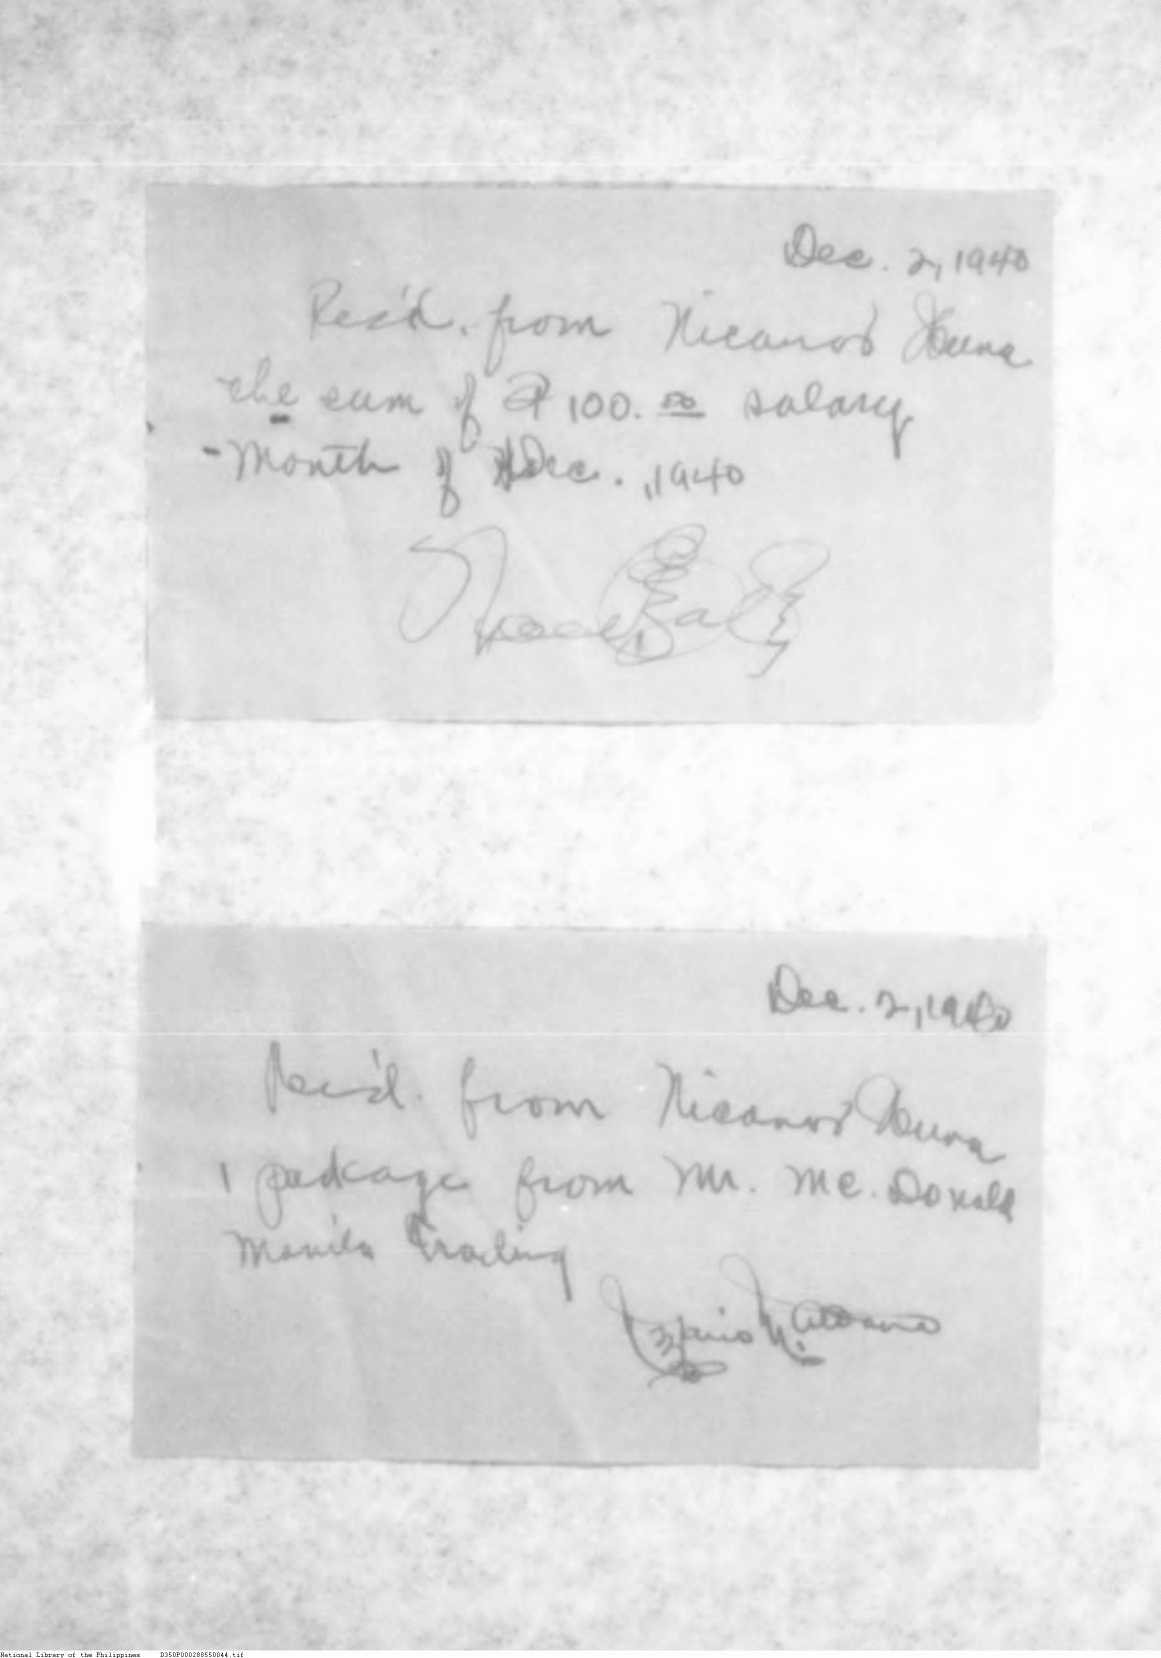 Dec. 2, 1940
Rec'd. from Nicanor
the sum of ₱ 100.00 salary
-Month of Dec., 1940
Dec. 2, 1940
Rec'd. from Nicanor
1 package from Mr. Mc. Donald
Manila Trading
National Library of the Philippines D350P000288550044.tif